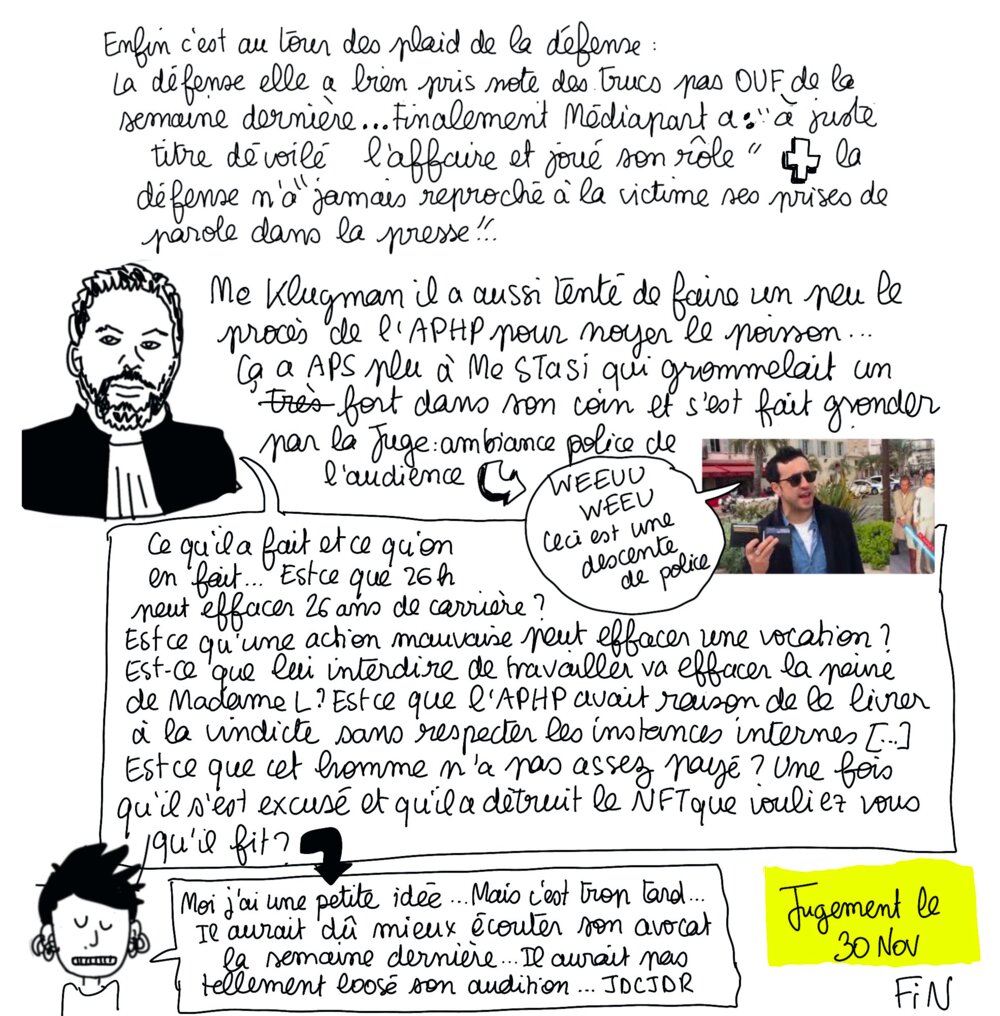 Enfin c'est au tour des plaid de la défense :
La défense elle a bien pris note des trucs pas OUF de la
semaine dernière... Finalement Médiapart a : "à juste
titre dévoilé l'affaire et joué son rôle" + la
défense n'a "jamais reproché à la victime ses prises de
parole dans la presse"...
Me Klugman il a aussi tenté de faire un peu le
procès de l'APHP pour noyer le poisson...
Ça a APS plu à Me STASI qui grommelait un
très fort dans son coin et s'est fait gronder
par la Juge : ambiance police de
l'audience
WEEUU
WEEU
Ceci est une
descente
de police
Ce qu'il a fait et ce qu'on
en fait... Est ce que 26h
peut effacer 26 ans de carrière ?
Est ce qu'une action mauvaise peut effacer une vocation ?
Est-ce que lui interdire de travailler va effacer la peine
de Madame L ? Est ce que l'APHP avait raison de le livrer
à la vindicte sans respecter les instances internes [...]
Est ce que cet homme n'a pas assez payé ? Une fois
qu'il s'est excusé et qu'il a détruit le NFT que vouliez vous
qu'il fit ?
Moi j'ai une petite idée... Mais c'est trop tard...
Il aurait dû mieux écouter son avocat
la semaine dernière... Il aurait pas
tellement loosé son audition... JDCJDR
Jugement le
30 Nov
FiN